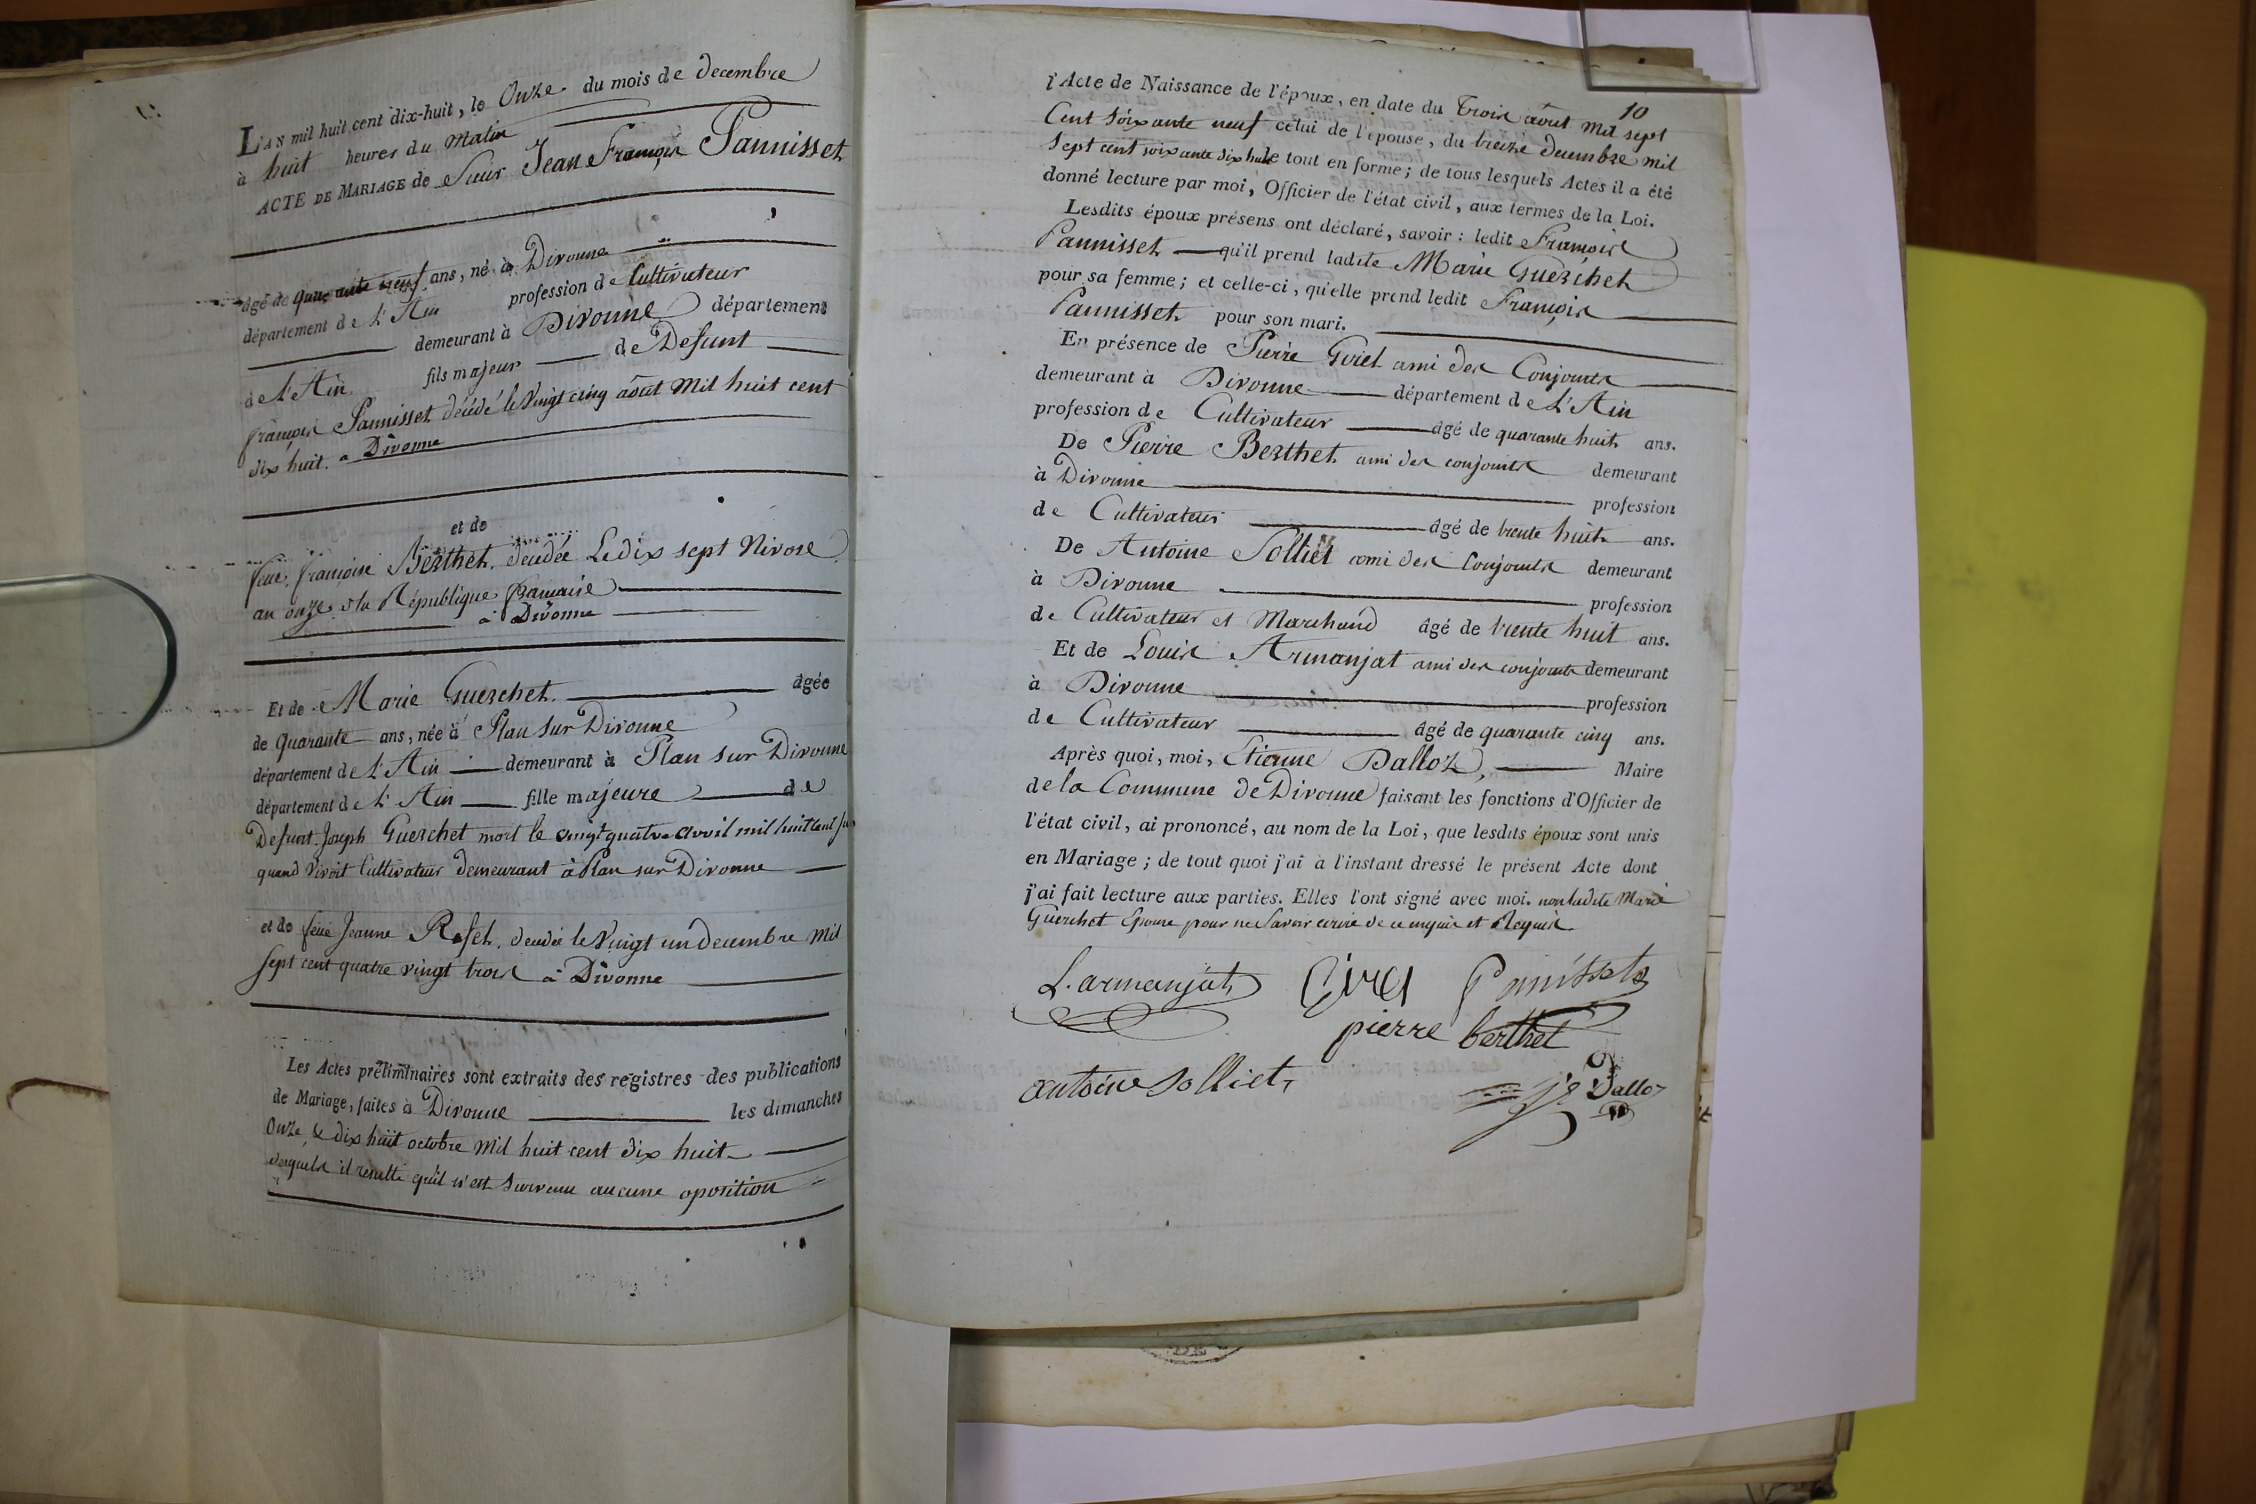 L'AN mil huit cent dix-huit, le Onze du mois de decembre
à huit heures du Matin
ACTE DE MARIAGE de Sieur Jean François Pannisset
âgé de quarante neuf ans, né à Divonne
département de L'Ain profession de Cultivateur
demeurant à Divonne département
de L'Ain fils majeur de Defunt
françois Pannisset décédé le Vingt cinq août Mil huit cent
dix huit. a Divonne
et de
feue françoise Berthet. décédée Le dix sept Nivose
an onze de la République française
a Divonne
Et de Marie Guerchet. agée
de quarante ans, née à Plan sur Divonne
département de L'Ain demeurant à Plan sur Divonne
département de L'Ain fille majeure de
Defunt Joseph Guerchet mort le vingt quatre avril mil huit cent
quand Vivoit Cultivateur demeurant à Plan sur Divonne
et de feue Jeanne Roset. décédée le Vingt un decembre Mil
sept cent quatre vingt trois a Divonne
Les Actes préliminaires sont extraits des registres des publications
de Mariage, faites à Divonne les dimanches
Onze, & dix huit octobre Mil huit cent dix huit
desquels il resulte qu'il n'est Survenu aucune oposition
10
l'Acte de Naissance de l'époux, en date du Trois aout Mil sept
Cent Soixante neuf celui de l'épouse, du treize decembre mil
Sept cent soixante dix huit le tout en forme; de tous lesquels Actes il a été
donné lecture par moi, Officier de l'état civil, aux termes de la Loi.
Lesdits époux présens ont déclaré, savoir: ledit François
Pannisset qu'il prend ladite Marie Guerchet
pour sa femme; et celle-ci, qu'elle prend ledit François
Pannisset pour son mari.
En présence de Pierre Giriel ami des Conjoints
demeurant à Divonne département de L'Ain
profession de Cultivateur âgé de quarante huit ans.
De Pierre Berthet ami des conjoints demeurant
à Divonne profession
de Cultivateur âgé de trente huit ans.
De Antoine Solliet ami des Conjoints demeurant
à Divonne profession
de Cultivateur et Marchand âgé de trente huit ans.
Et de Louis Armanjat ami des conjoints demeurant
à Divonne profession
de Cultivateur âgé de quarante cinq ans.
Après quoi, moi, Etienne Dalloz, Maire
de la Commune de Divonne faisant les fonctions d'Officier de
l'état civil, ai prononcé, au nom de la Loi, que lesdits époux sont unis
en Mariage; de tout quoi j'ai à l'instant dressé le présent Acte dont
j'ai fait lecture aux parties. Elles l'ont signé avec moi. non ladite Marie
Guerchet Epouse pour ne Savoir écrire de ce enquise et Requise
L. armanjat Panisset
pierre berthet
antoine solliet Dalloz